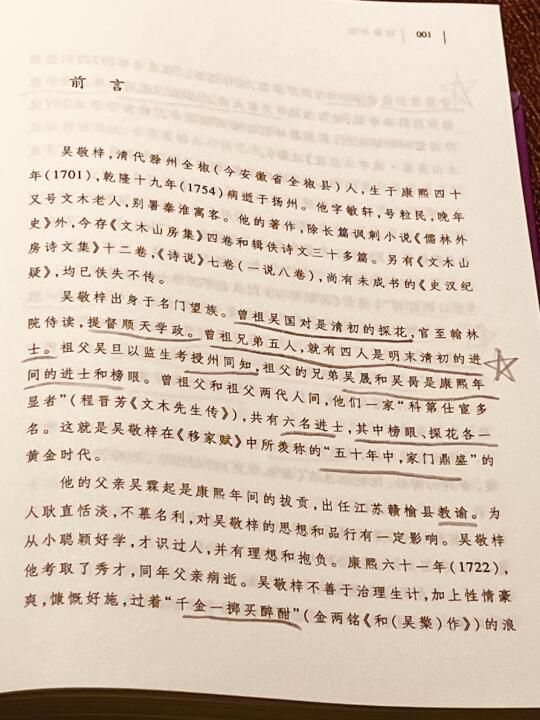 001
前 言
吴敬梓,清代滁州全椒(今安徽省全椒县)人,生于康熙四十
年(1701),乾隆十九年(1754)病逝于扬州。他字敏轩,号粒民,晚年
又号文木老人,别署秦淮寓客。他的著作,除长篇讽刺小说《儒林外
史》外,今存《文木山房集》四卷和辑佚诗文三十多篇。另有《文木山
房诗文集》十二卷,《诗说》七卷(一说八卷),尚有未成书的《史汉纪
疑》,均已佚失不传。
吴敬梓出身于名门望族。曾祖吴国对是清初的探花,官至翰林
院侍读,提督顺天学政。曾祖兄弟五人,就有四人是明末清初的进
士。祖父吴旦以监生考授州同知,祖父的兄弟吴晟和吴昺是康熙年
间的进士和榜眼。曾祖父和祖父两代人间,他们一家“科第仕宦多
显者”(程晋芳《文木先生传》),共有六名进士,其中榜眼、探花各一
名。这就是吴敬梓在《移家赋》中所羡称的“五十年中,家门鼎盛”的
黄金时代。
他的父亲吴霖起是康熙年间的拔贡,出任江苏赣榆县教谕。为
人耿直恬淡,不慕名利,对吴敬梓的思想和品行有一定影响。吴敬梓
从小聪颖好学,才识过人,并有理想和抱负。康熙六十一年(1722),
他考取了秀才,同年父亲病逝。吴敬梓不善于治理生计,加上性情豪
爽,慷慨好施,过着“千金一掷买醉酣”(金两铭《和(吴檠)作》)的浪